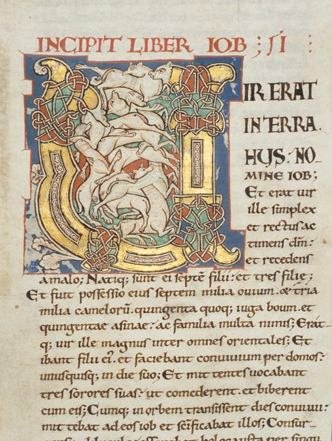 INCIPIT LIBER IOB
VIR ERAT
IN TERRA
HUS: NO
MINE IOB;
Et erat vir
ille simplex
et rectus ac
timens dm̄:
et recedens
amalo; Natiq; sunt ei septē filii: et tres filie;
Et fuit possessio eius septem milia ovium. & tria
milia camelorū. quingenta quoq; iuga boum. et
quingentae asinae. ac familia multa nimis; Erat
q; vir ille magnus inter omnes orientales; Et
ibant filii ei᾽. et faciebant convivium per domos.
unusquisq; in die suo; Et mittentes vocabant
tres sorores suas. ut comederent. et biberent
cum eis; Cumq; in orbem transissent dies convivii:
mittebat ad eos iob et scificabat illos; Consur